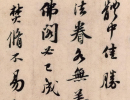 體中佳勝
法眷各無恙
佛閣必已成
焚脩不易